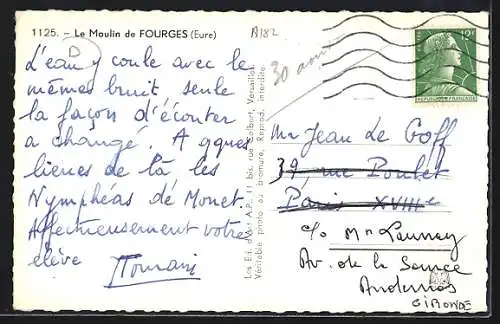 1125. – Le Moulin de FOURGES (Eure)
A182
L'eau y coule avec le
même bruit seule
la façon d'écouter
a changé. A qques
lieues de là les
Nymphéas de Monet
Affectueusement votre
élève
30 ans
Les Ed. d'Art A.P., 11 bis, rue Colbert, Versailles.
Véritable photo au bromure. Reprod. interdite
10F
Mr Jean Le Goff
39, rue Poulet
Paris XVIIIe
c/o Mr Launey
Av. de la Source
Andernos
GIRONDE